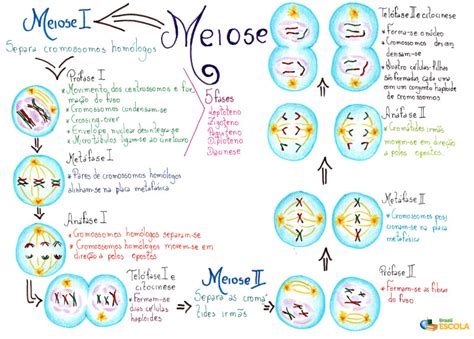 Meiose
Meiose I
Separa cromossomos homólogos
Prófase I
* Movimento dos centrossomos e for
mação do fuso
* Cromossomos condensam-se
* Crossing-over
* Envelope nuclear desintegra-se
* Microtúbulos ligam-se ao cinetócoro
5 fases
Leptóteno
Zigóteno
Paquíteno
Diplóteno
Diacinese
Metáfase I
* Pares de cromossomos homólogos
alinham-se na placa metafásica
Anáfase I
* Cromossomos homólogos separam-se
* Cromossomos homólogos movem-se em
direção a polos opostos
Telófase I e
citocinese
* Formam-se
duas células
haploides
Meiose II
Separa as cromá
tides irmãs
Prófase II
* Forma-se as fibras
do fuso
Metáfase II
* Cromossomos posi
cionam-se na placa
metafásica
Anáfase II
* Cromátides irmãs
movem-se em direção
a polos opostos
Telófase II e citocinese
* Forma-se o núcleo
* Cromossomos descon
densam-se
* Quatro células-filhas
são formadas, cada uma
com um conjunto haploide
de cromossomos
Brasil
ESCOLA